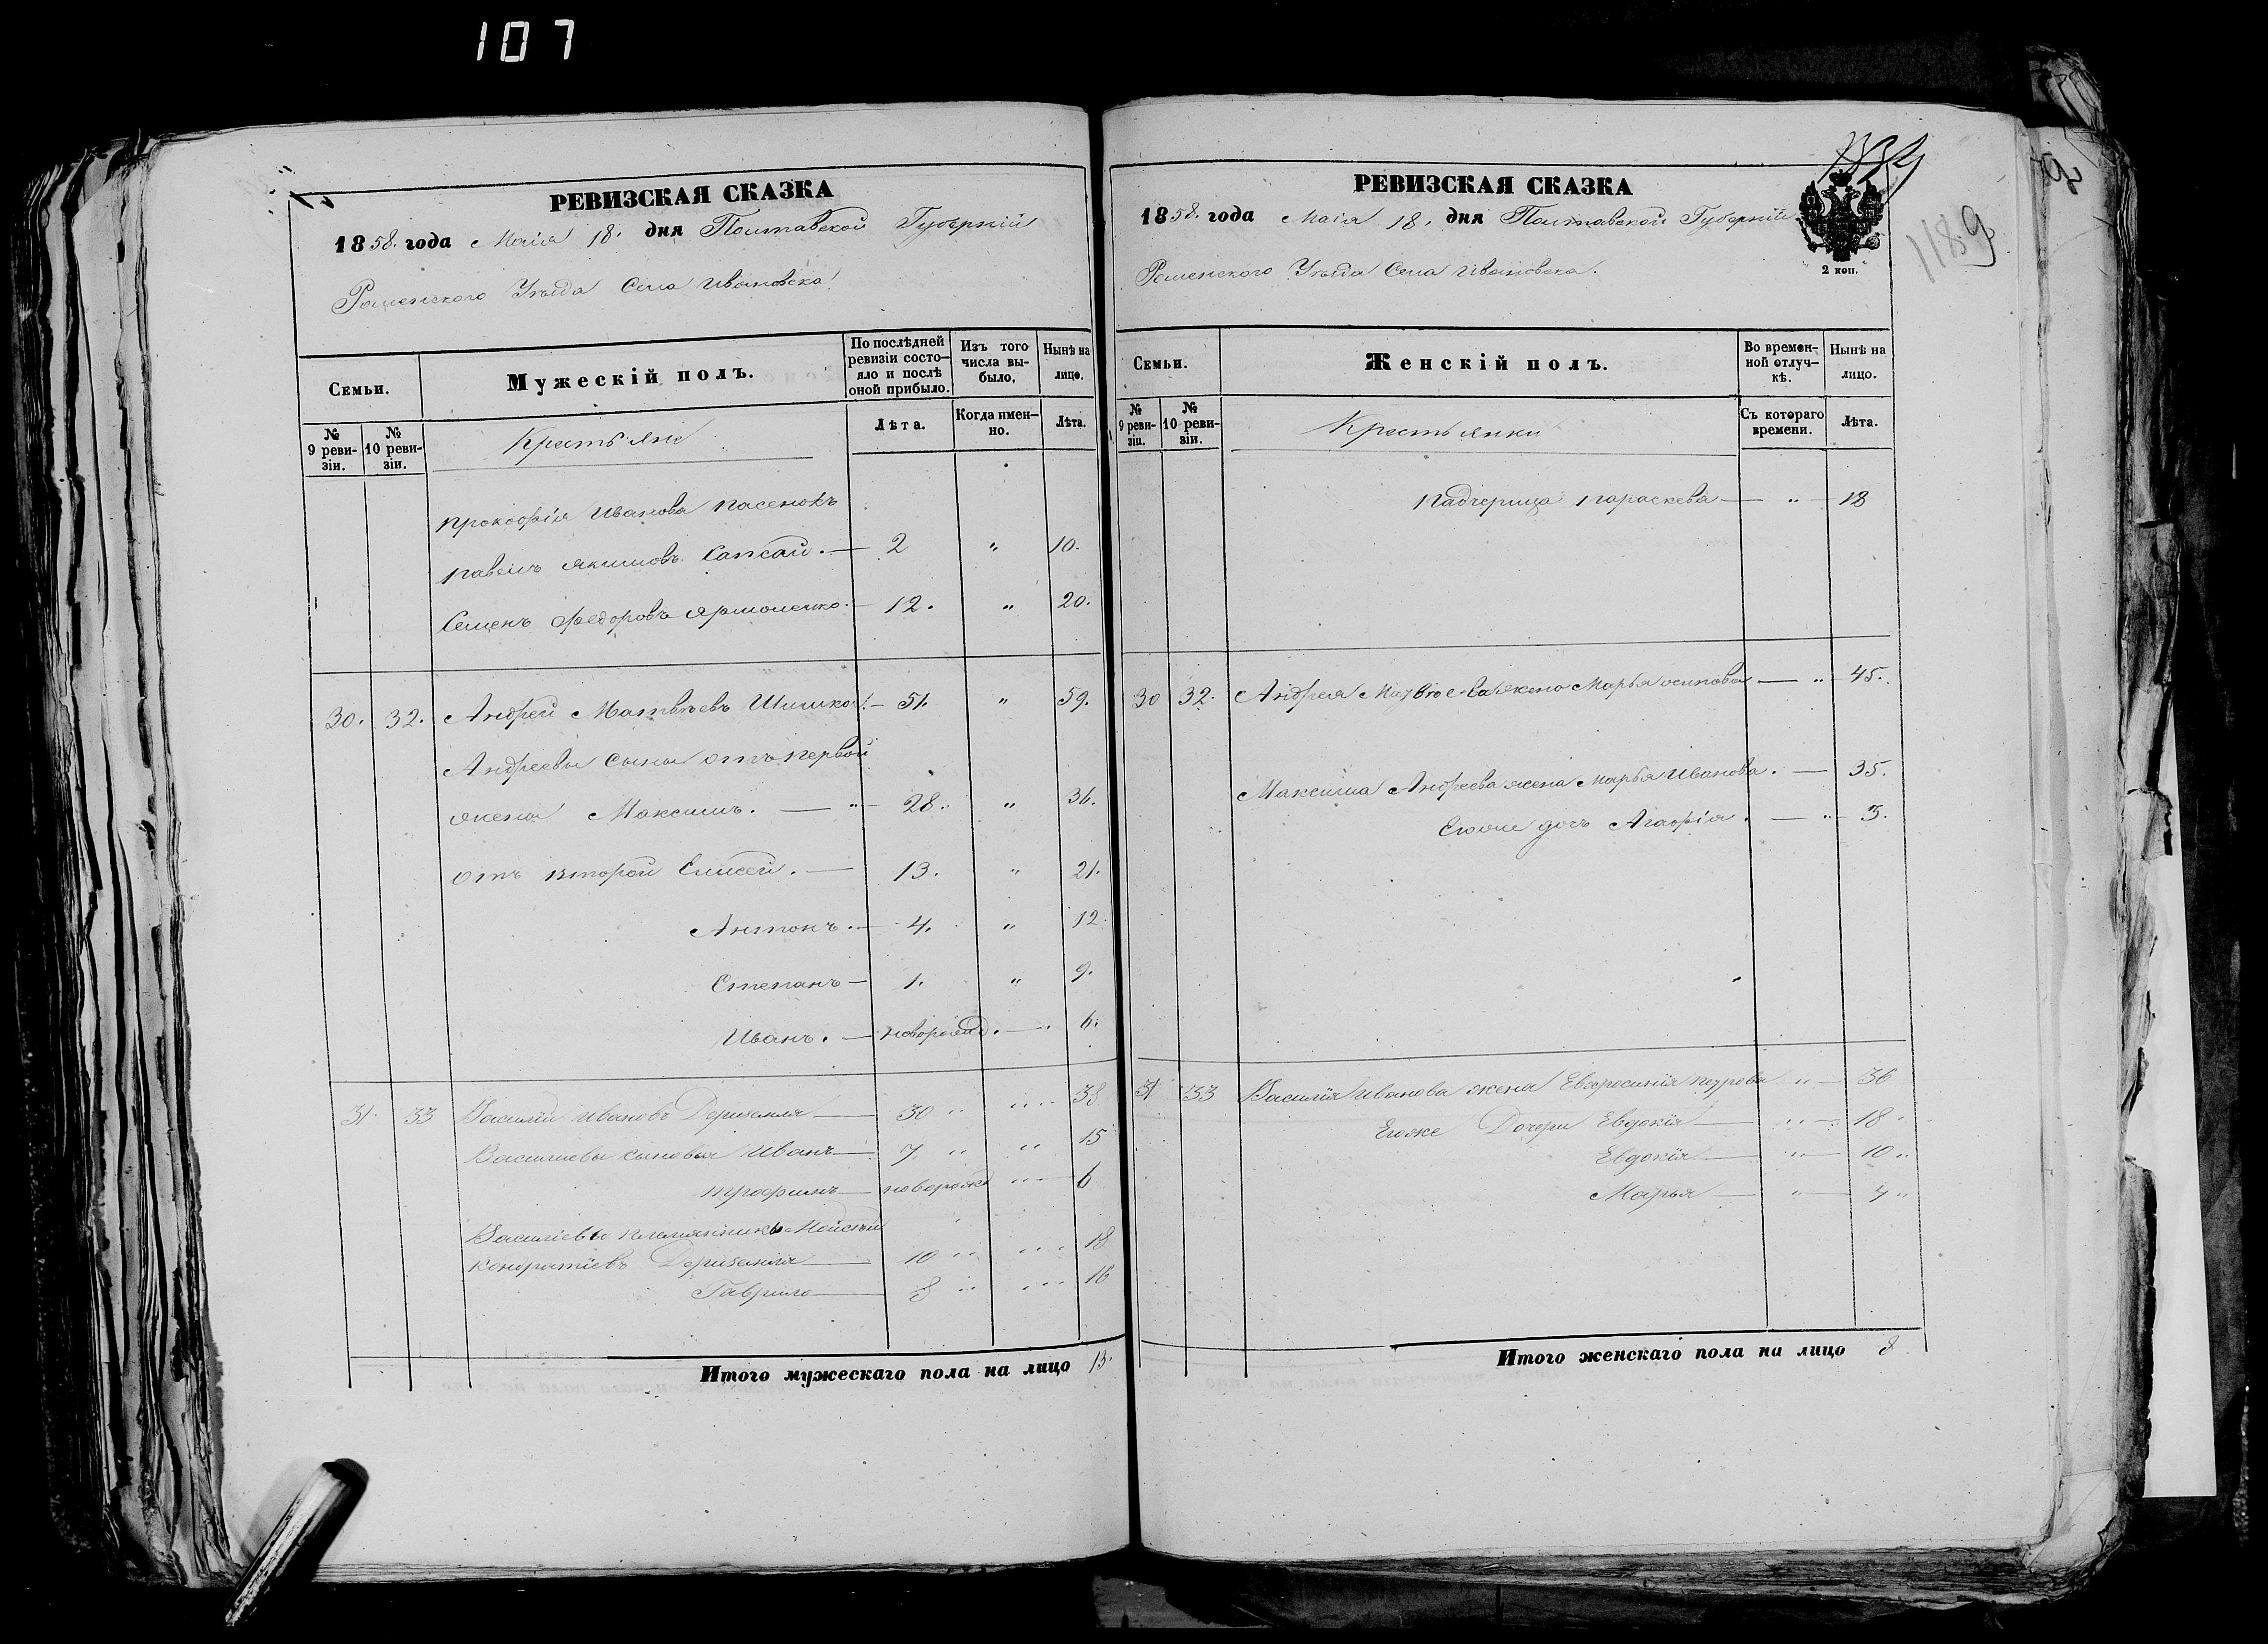 107
РЕВИЗСКАЯ СКАЗКА
1858. года Маія 18. дня Полтавской Губерніи
Роменского Уѣзда Села Ивановска
Семьи.
Мужескій полъ.
По послѣдней ревизіи состояло и послѣ оной прибыло.
Изъ того числа выбыло,
Нынѣ на лицо.
№ 9 ревизіи.
№ 10 ревизіи.
Крестьяне
Лѣта.
Когда именно.
Лѣта.
Прокофія Иванова пасенокъ
Павелъ Якимовъ Сапсай. — 2 " 10.
Семенъ Федоровъ Ярмоленко. — 12. " 20.
30. 32. Андрей Матвѣевъ Шишко — 51. " 59.
Андреевы сыны отъ первой
жены Максимъ. — " 28. " 36.
отъ второй Елисей. — 13. " 21.
Антонъ. — 4. " 12.
Степанъ — 1. " 9.
Иванъ. — новорожд. — 6.
31. 33 Василій Ивановъ Деризем­ля — 30 " " 38
Василиевы сыновья Иванъ — 7 " " 15
Трофимъ — новорожд " — 6
Василіевы племянники Мойсей
Кондратіевъ Дериземля — 10 " " 18
Гаврило — 8 " " 16
Итого мужескаго пола на лицо 13.
РЕВИЗСКАЯ СКАЗКА
1858. года Маія 18. дня Полтавской Губерніи
Роменского Уѣзда Села Ивановска.
2 коп.
1189
Семьи.
Женскій полъ.
Во временной отлучкѣ.
Нынѣ на лицо.
№ 9 ревизіи.
№ 10 ревизіи.
Крестьянки
Съ котораго времени.
Лѣта.
Падчерица Параскева — " — 18
30 32. Андрея Матвѣева жена Марья Осипова — " 45.
Максима Андреева жена Марья Иванова. — 35.
Егоже дочь Агафія. — " — 3.
31 33 Василія Иванова жена Евфросинія Петрова " — 36
Егоже Дочери Евдокія — " — 18 "
Евдокія — " — 10 "
Марья — " — 4 "
Итого женскаго пола на лицо 8